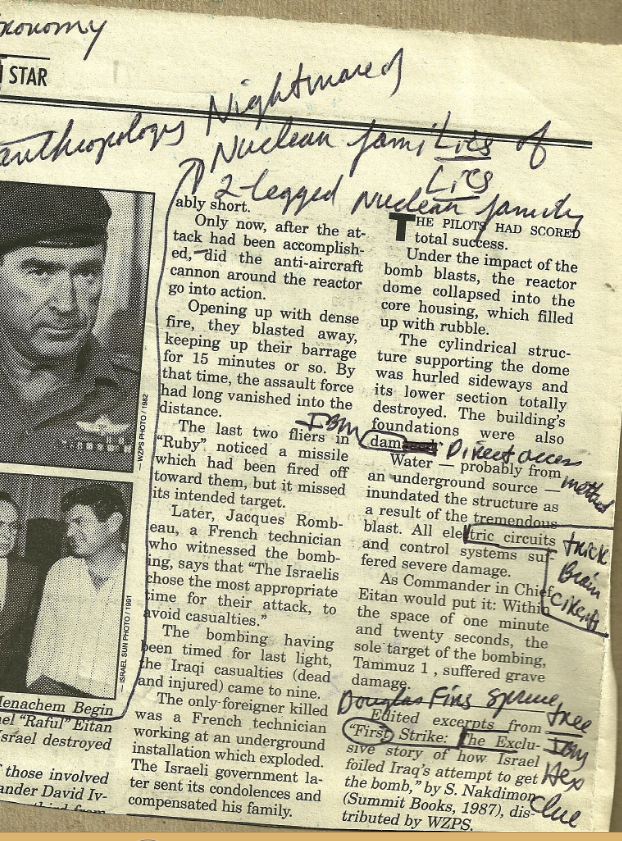 STAR
Nightmare of
Nuclear families of
Lies
2-legged Nuclear family
ably short.
Only now, after the at-
tack had been accomplish-
ed, did the anti-aircraft
cannon around the reactor
go into action.
Opening up with dense
fire, they blasted away,
keeping up their barrage
for 15 minutes or so. By
that time, the assault force
had long vanished into the
distance.
The last two fliers in
"Ruby" noticed a missile
which had been fired off
toward them, but it missed
its intended target.
Later, Jacques Romb-
eau, a French technician
who witnessed the bomb-
ing, says that "The Israelis
chose the most appropriate
time for their attack, to
avoid casualties."
The bombing having
been timed for last light,
the Iraqi casualties (dead
and injured) came to nine.
The only foreigner killed
was a French technician
working at an underground
installation which exploded.
The Israeli government la-
ter sent its condolences and
compensated his family.
THE PILOTS HAD SCORED
total success.
Under the impact of the
bomb blasts, the reactor
dome collapsed into the
core housing, which filled
up with rubble.
The cylindrical struc-
ture supporting the dome
was hurled sideways and
its lower section totally
destroyed. The building's
foundations were also
IBM
dam
Direct access
method
Water — probably from
an underground source —
inundated the structure as
a result of the tremendous
blast. All electric circuits
and control systems suf-
fered severe damage.
trick
Brain
As Commander in Chief
Eitan would put it: Within
the space of one minute
and twenty seconds, the
sole target of the bombing,
Tammuz 1, suffered grave
damage.
Douglas Firs Spruce
tree
Edited excerpts from
"First Strike: The Exclu-
sive story of how Israel
foiled Iraq's attempt to get
the bomb," by S. Nakdimon
(Summit Books, 1987), dis-
tributed by WZPS.
IBM
Hex
clue
— WZPS PHOTO / 1982
— ISRAEL SUN PHOTO / 1981
Menachem Begin
"Raful" Eitan
Israel destroyed
of those involved
David Iv-